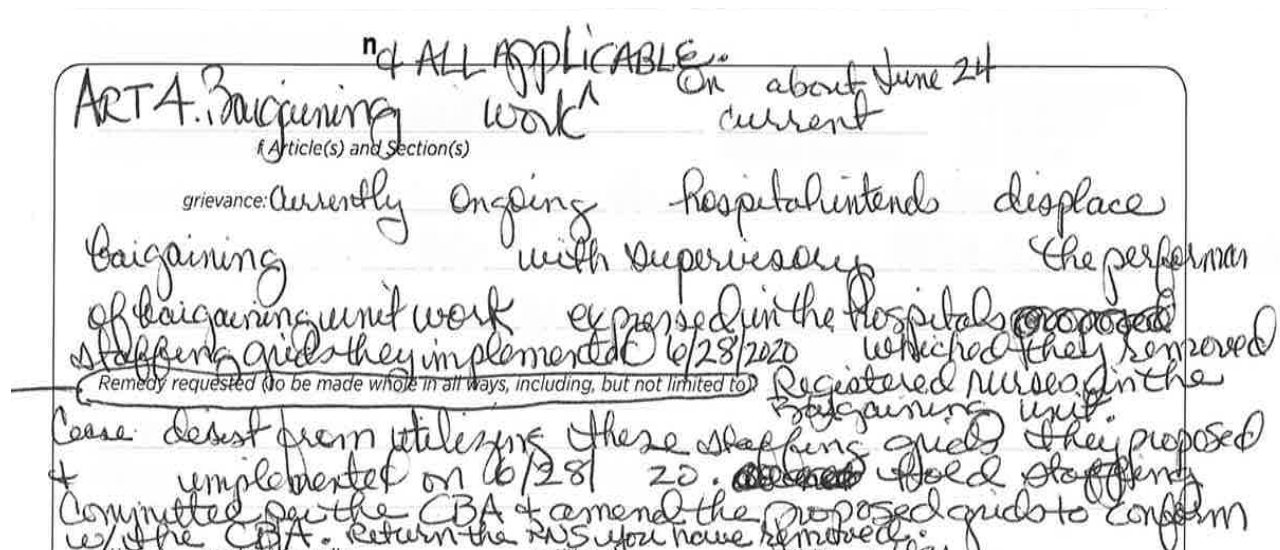 n & ALL APPLICABLE.
ART 4. Bargaining work ^ On about June 24
current
f Article(s) and Section(s)
grievance: Currently ongoing hospital intends displace
bargaining with supervisory the performan
of bargaining unit work expressed in the Hospitals proposed
staffing grids they implemented 6/28/2020 whiched they removed
Remedy requested (to be made whole in all ways, including, but not limited to) Registered nurses in the
Bargaining unit.
Cease desist from utilizing these staffing grids they proposed
& implemented on 6/28/ 20. Hold staffing
Committed per the CBA & amend the proposed grids to conform
w/ the CBA. Return the RNS you have removed.